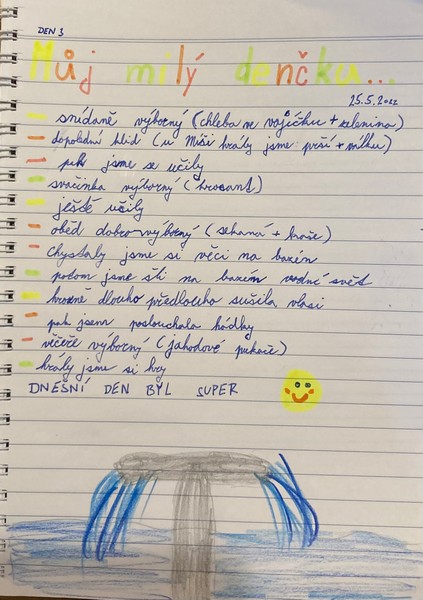 DEN 3
Můj milý denčku...
25.5.2022
- snídaně výborný (chleba ve vajíčku + zelenina)
- dopolední klid (u Míši hrály jsme prší + válku)
- pak jsme se učily
- svačinka výborný (kroasant)
- ještě učily
- oběd dobro-výborný (sekaná + kaše)
- chystaly jsme si věci na bazén
- potom jsme šli na bazén vodní svět
- hrozně dlouho předlouho sušila vlasi
- pak jsem poslouchala hádky
- věčeře výborný (jahodové pukače)
- hrály jsme si hry
DNEŠNÍ DEN BYL SUPER